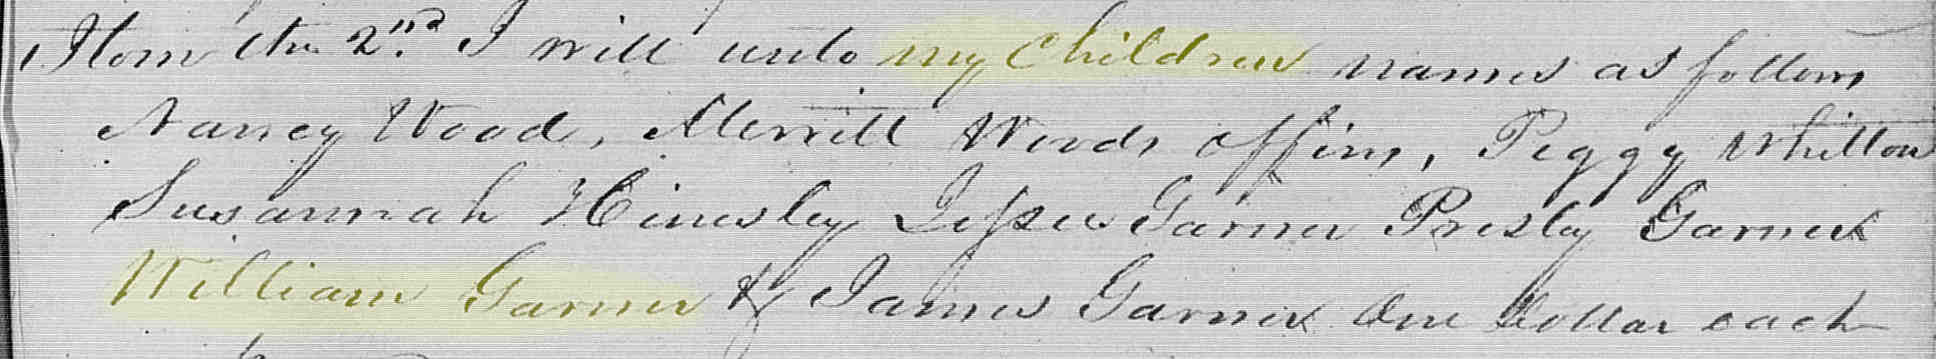 Item the 2nd. I will unto my Children names as follows
Nancy Wood, Merrill Woods offins, Peggy Whitton
Susannah Hinesley Jesse Garner Presley Garner
William Garner & James Garner One Dollar each